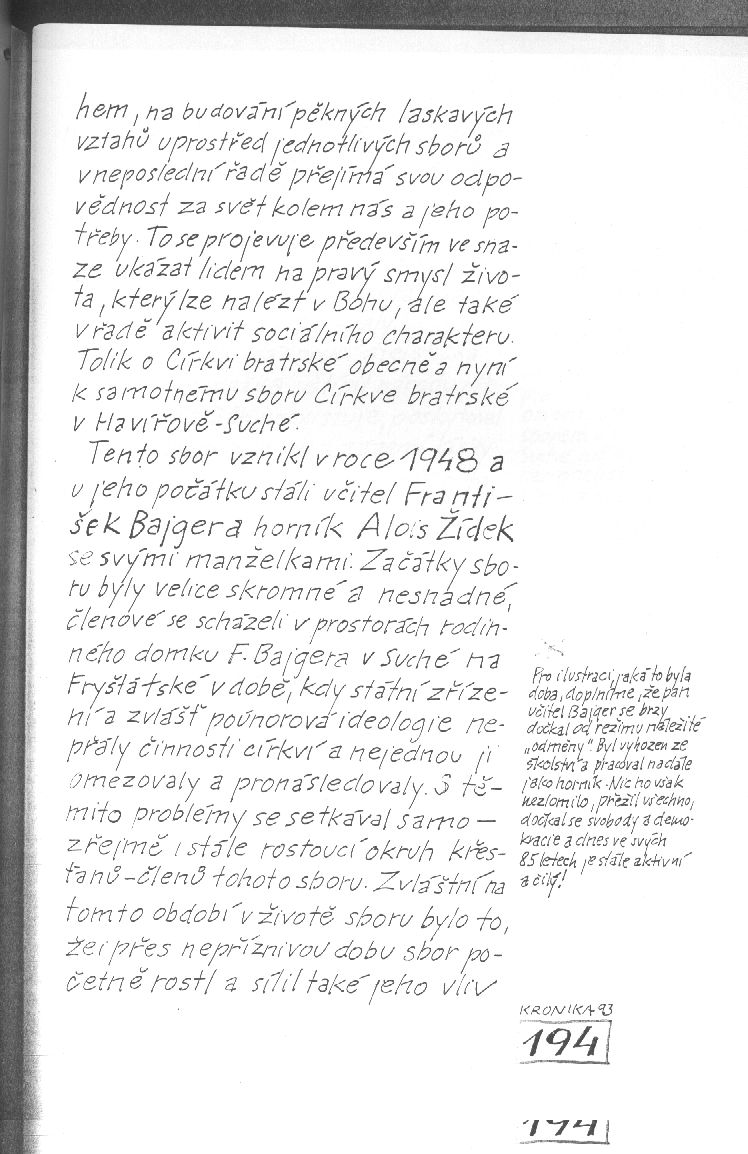 hem, na budování pěkných laskavých
vztahů uprostřed jednotlivých sborů a
v neposlední řadě přejímá svou odpo-
vědnost za svět kolem nás a jeho po-
třeby. To se projevuje především ve sna-
ze ukázat lidem na pravý smysl živo-
ta, který lze nalézt v Bohu, ale také
v řadě aktivit sociálního charakteru.
Tolik o Církvi bratrské obecně a nyní
k samotnému sboru Církve bratrské
v Havířově-Suché.
Tento sbor vznikl v roce 1948 a
u jeho počátku stáli učitel Franti-
šek Bajger a horník Alois Žídek
se svými manželkami. Začátky sbo-
ru byly velice skromné a nesnadné,
členové se scházeli v prostorách rodin-
ného domku F. Bajgera v Suché na
Fryštátské v době, kdy státní zříze-
ní a zvlášť poúnorová ideologie ne-
přály činnosti církví a nejednou ji
omezovaly a pronásledovaly. S tě-
mito problémy se setkával samo-
zřejmě i stále rostoucí okruh křes-
ťanů-členů tohoto sboru. Zvláštní na
tomto období v životě sboru bylo to,
že i přes nepříznivou dobu sbor po-
četně rostl a sílil také jeho vliv
Pro ilustraci, jaká to byla
doba, doplníme, že pan
učitel Bajger se brzy
dočkal od režimu náležité
„odměny". Byl vyhozen ze
školství a pracoval nadále
jako horník. Nic ho však
nezlomilo, přežil všechno,
dočkal se svobody a demo-
kracie a dnes ve svých
85 letech je stále aktivní
a čilý!
KRONIKA 93
194
194